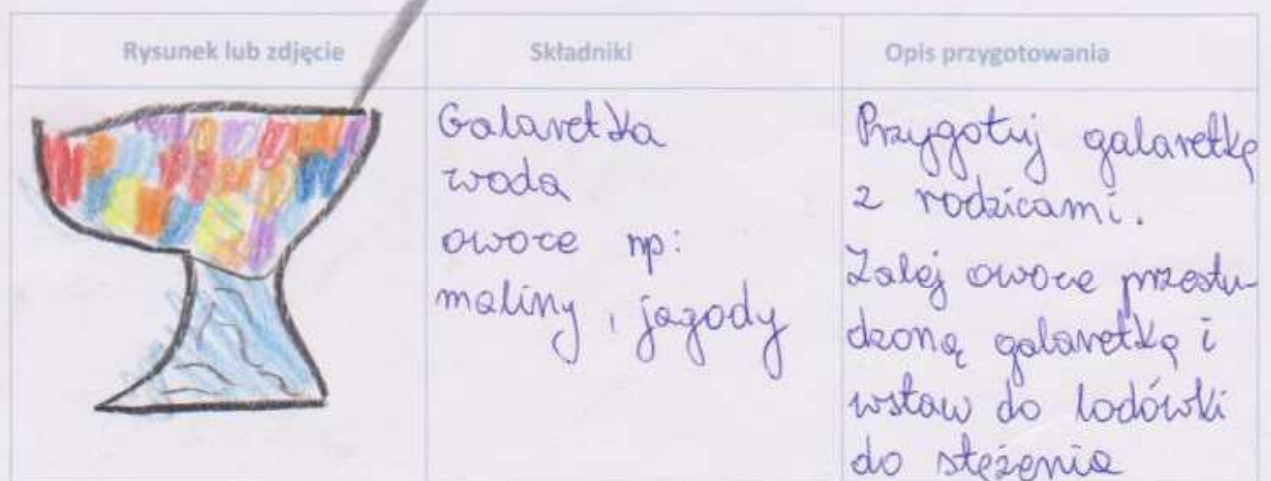 Rysunek lub zdjęcie
Składniki
Opis przygotowania
Galaretka
woda
owoce np:
maliny, jagody
Przygotuj galaretkę
z rodzicami.
Zalej owoce przestu-
dzoną galaretką i
wstaw do lodówki
do stężenia